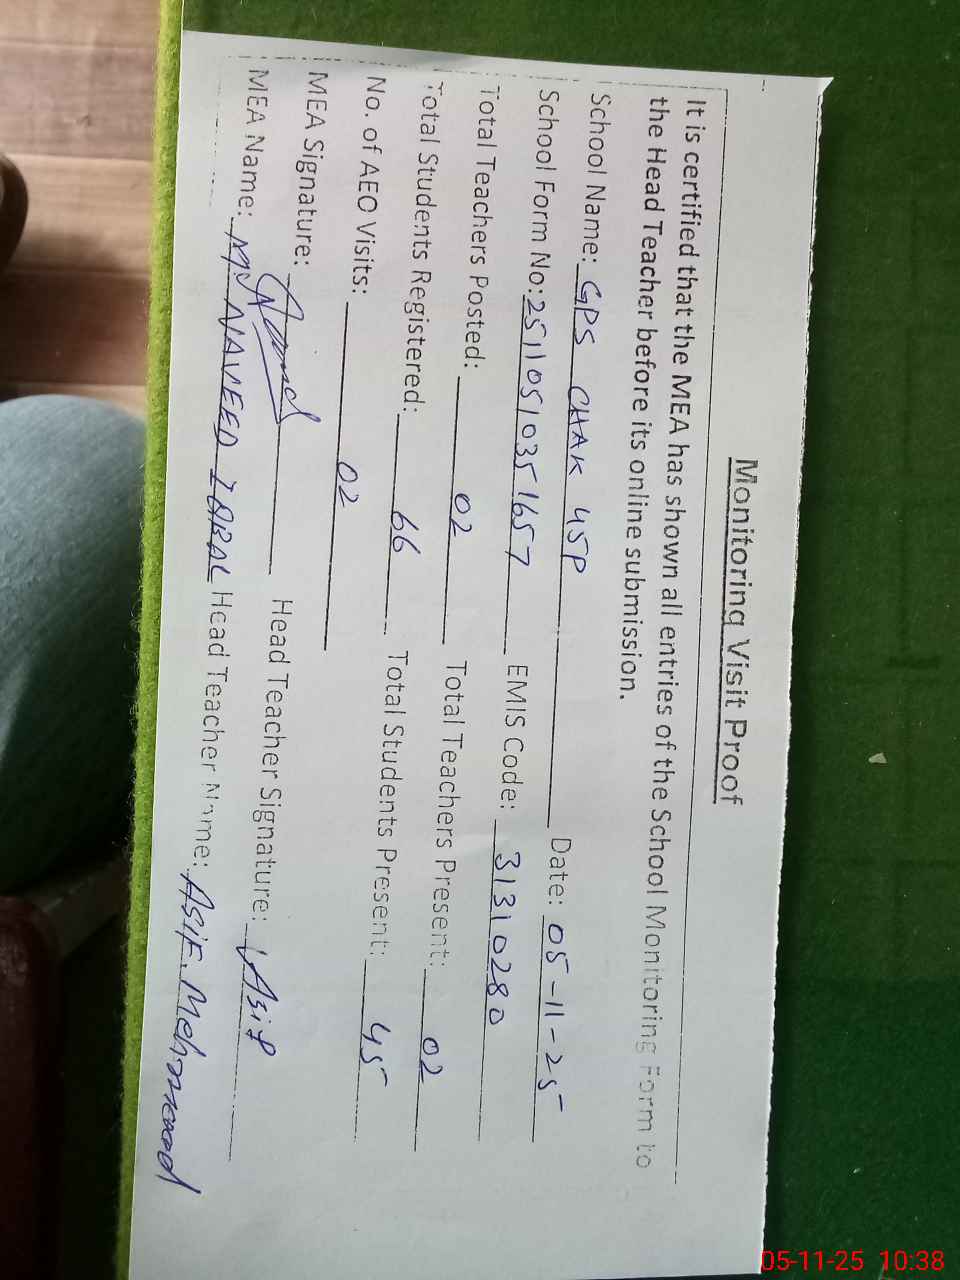 Monitoring Visit Proof
It is certified that the MEA has shown all entries of the School Monitoring Form to
the Head Teacher before its online submission.
School Name: GPS CHAK 45P Date: 05-11-25
School Form No: 25110510351657 EMIS Code: 31310280
Total Teachers Posted: 02 Total Teachers Present: 02
Total Students Registered: 66 Total Students Present: 45
No. of AEO Visits: 02
MEA Signature: Head Teacher Signature: Asif
MEA Name: NAVEED IQBAL Head Teacher Name: ASIF. Mehmood
05-11-25 10:38